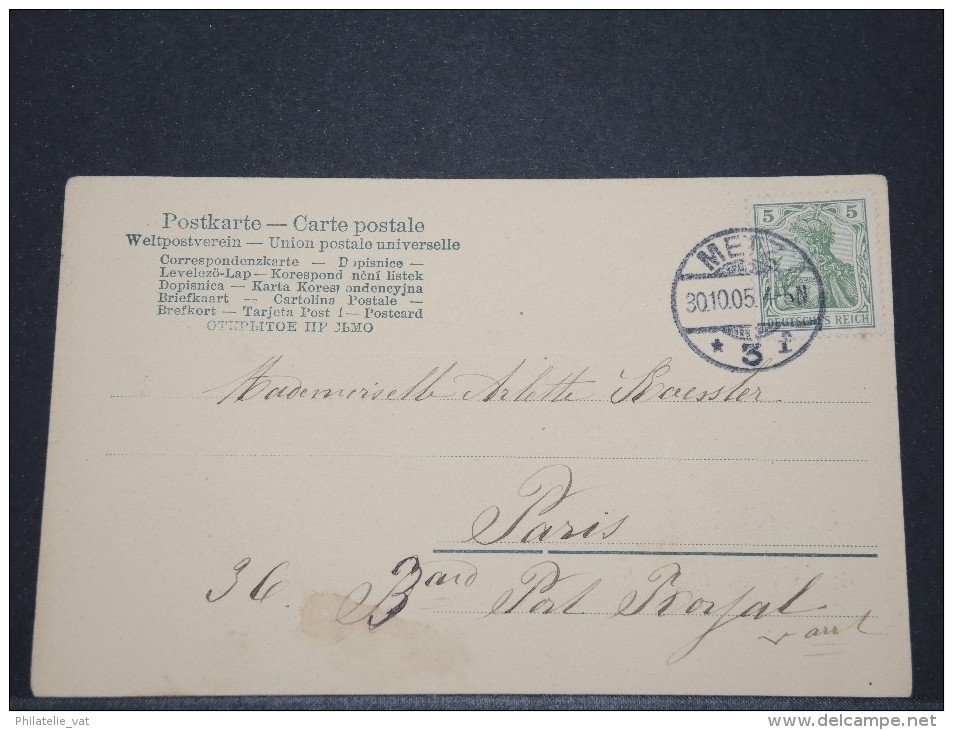 Postkarte — Carte postale
Weltpostverein — Union postale universelle
Correspondenzkarte — Dopisnice —
Levelező-Lap — Korespond nční lístek
Dopisnica — Karta Kores ondencyjna
Briefkaart — Cartolina Postale —
Brefkort — Tarjeta Post l — Postcard
ОТКРЫТОЕ ПИ ЬМО
5 5
DEUTSCHES REICH
METZ
30.10.05. 4-5N
* 3 1
Mademoiselle Arlette
Paris
36. Bard Port Royal
Philatelie_vat
delcampe.net